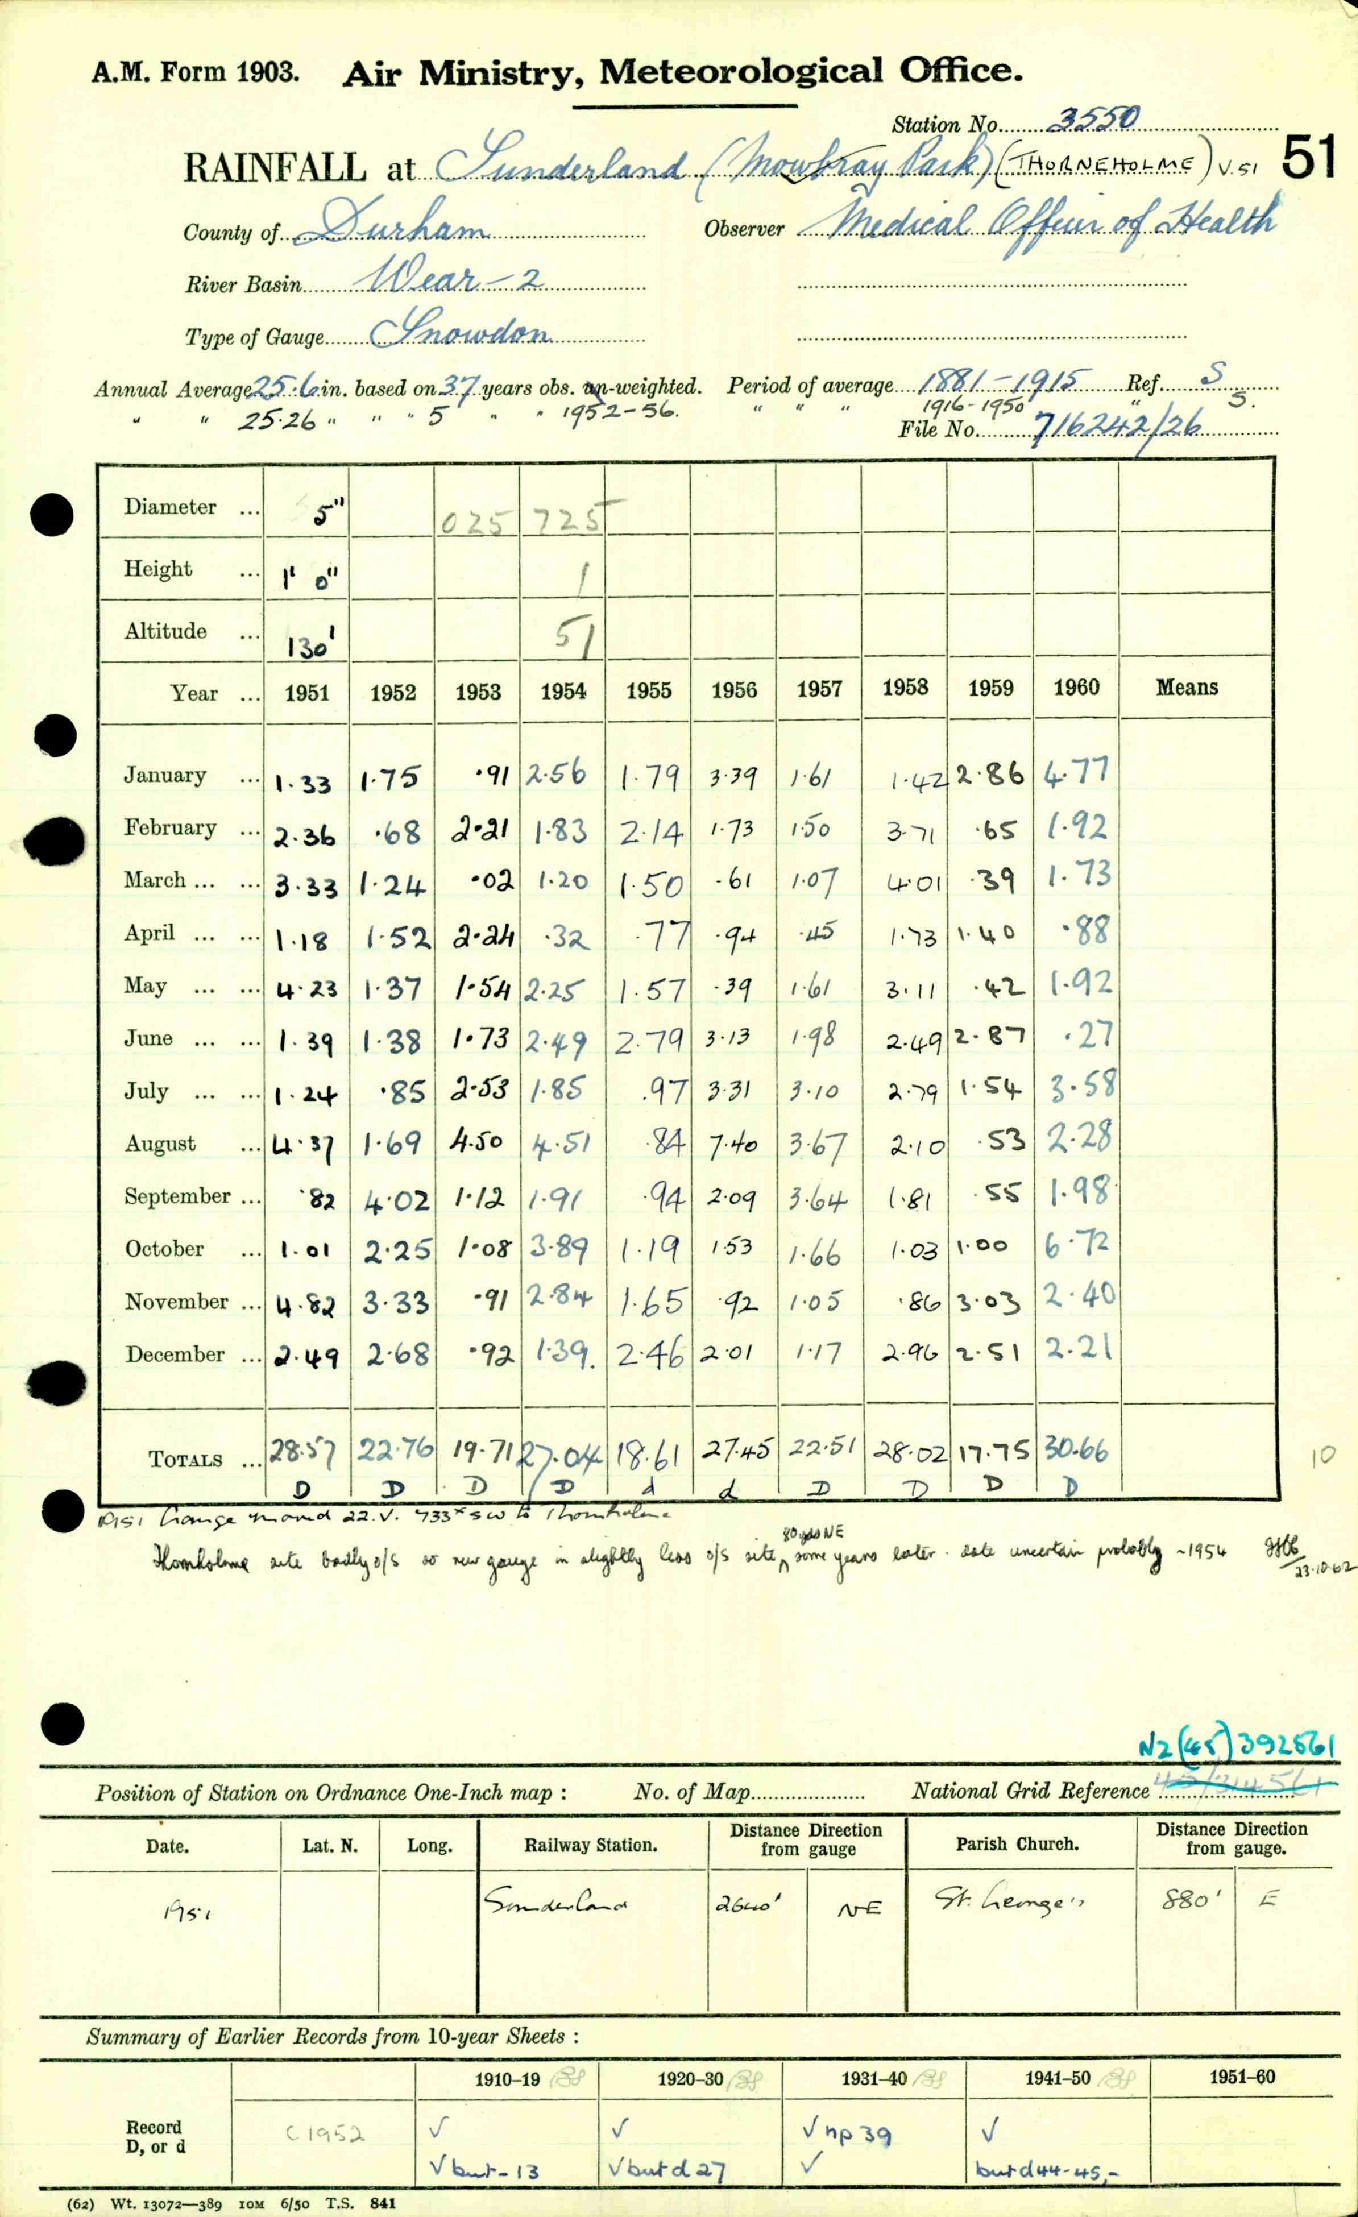 A.M. Form 1903. Air Ministry, Meteorological Office.
Station No. 3550
RAINFALL at Sunderland (Mowbray Park) (THORNEHOLME) V.51 51
County of Durham Observer Medical Officer of Health
River Basin Wear - 2
Type of Gauge Snowdon
Annual Average 25.6 in. based on 37 years obs. un-weighted. Period of average 1881-1915 Ref. S
" " 25.26 " " " 5 " " 1952-56. " " " 1916-1950 " S.
File No. 716242/26
Diameter ... 5" 025 725
Height ... 1' 0" 1
Altitude ... 130' 51
Year ... 1951 1952 1953 1954 1955 1956 1957 1958 1959 1960 Means
January ... 1.33 1.75 .91 2.56 1.79 3.39 1.61 1.42 2.86 4.77
February ... 2.36 .68 2.21 1.83 2.14 1.73 1.50 3.71 .65 1.92
March ... ... 3.33 1.24 .02 1.20 1.50 .61 1.07 4.01 .39 1.73
April ... ... 1.18 1.52 2.24 .32 .77 .94 .45 1.73 1.40 .88
May ... ... 4.23 1.37 1.54 2.25 1.57 .39 1.61 3.11 .42 1.92
June ... ... 1.39 1.38 1.73 2.49 2.79 3.13 1.98 2.49 2.87 .27
July ... ... 1.24 .85 2.53 1.85 .97 3.31 3.10 2.79 1.54 3.58
August ... 4.37 1.69 4.50 4.51 .84 7.40 3.67 2.10 .53 2.28
September ... .82 4.02 1.12 1.91 .94 2.09 3.64 1.81 .55 1.98
October ... 1.01 2.25 1.08 3.89 1.19 1.53 1.66 1.03 1.00 6.72
November ... 4.82 3.33 .91 2.84 1.65 .92 1.05 .86 3.03 2.40
December ... 2.49 2.68 .92 1.39. 2.46 2.01 1.17 2.96 2.51 2.21
TOTALS ... 28.57 22.76 19.71 27.04 18.61 27.45 22.51 28.02 17.75 30.66 10
D D D D d d D D D D
1951 Gauge moved 22.V. 733x SW to Thornholme
80 yds NE
Thornholme site badly o/s so new gauge in slightly less o/s site, some years later. date uncertain probably ~1954
23.10.62
NZ (45) 392561
Position of Station on Ordnance One-Inch map : No. of Map National Grid Reference
Date. Lat. N. Long. Railway Station. Distance Direction from gauge Parish Church. Distance Direction from gauge.
1951 Sunderland 2640' NE St. George's 880' E
Summary of Earlier Records from 10-year Sheets :
1910-19 1920-30 1931-40 1941-50 1951-60
Record D, or d C 1952 √ √ √ np 39 √
√ but - 13 √ but d 27 √ but d 44-45,-
(62) Wt. 13072—389 10M 6/50 T.S. 841